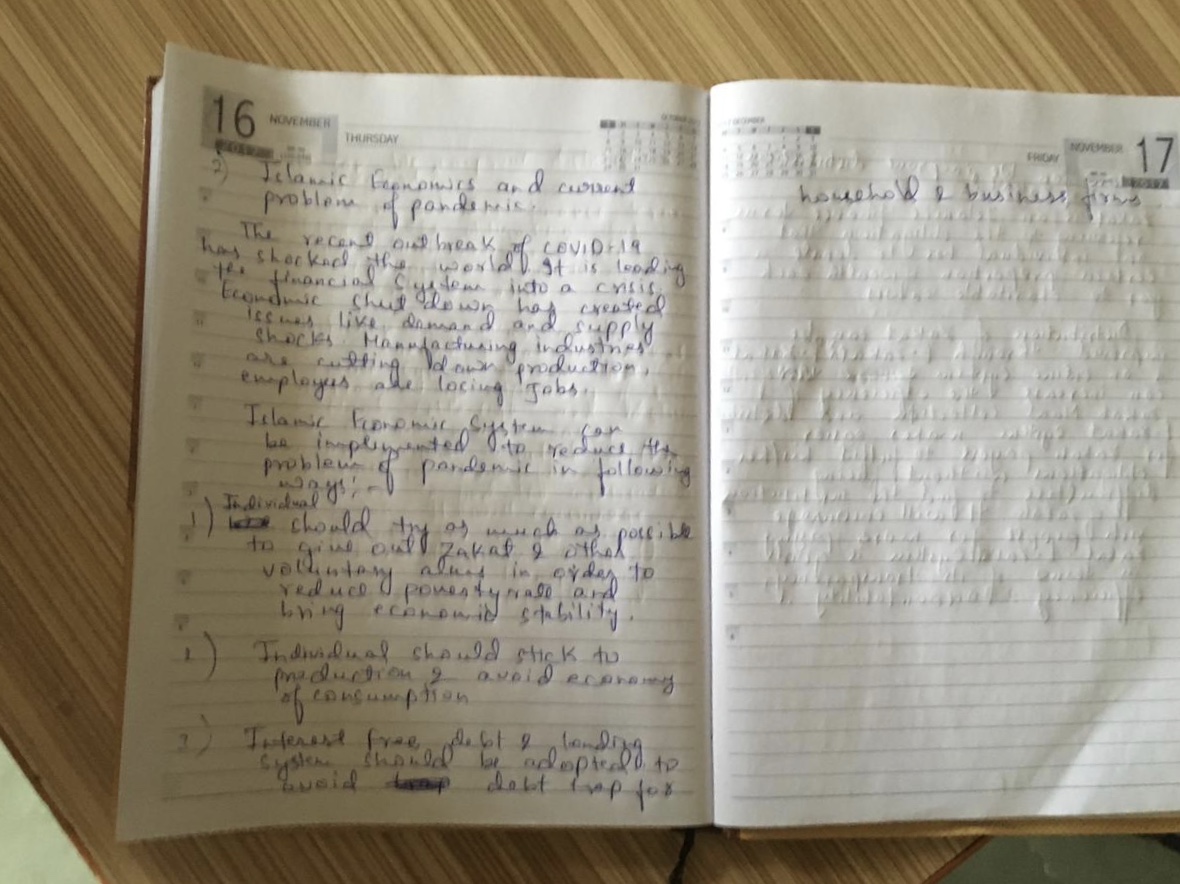 16 NOVEMBER
THURSDAY
2017
3) Islamic Economics and current
problem of pandemic.
The recent outbreak of COVID-19
has shocked the world. It is leading
the financial System into a crisis.
Economic shut down has created
issues like demand and supply
shocks. Manufacturing industries
are cutting down production,
employees are losing Jobs.
Islamic Economic System can
be implemented to reduce the
problem of pandemic in following
ways; -
Individual
1) should try as much as possible
to give out Zakat & other
voluntary alms in order to
reduce poverty rate and
bring economic stability.
2) Individual should stick to
production & avoid economy
of consumption
3) Interest free debt & lending
system should be adopted to
avoid debt trap for
DECEMBER
FRIDAY
NOVEMBER 17
2017
household & business firms